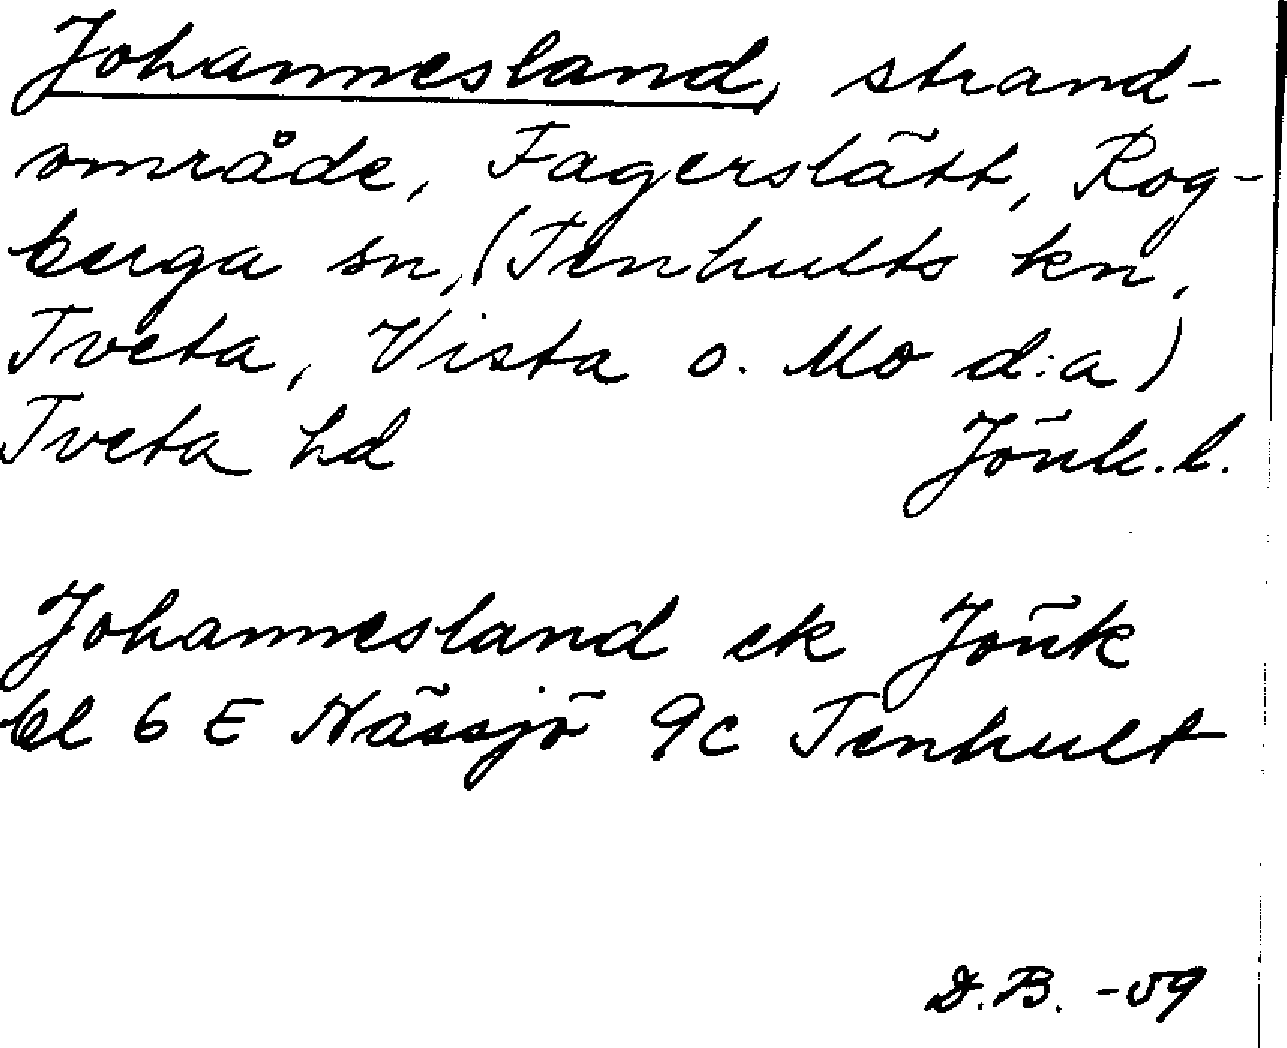 Johannesland, strand-
område, Fagerslätt, Rog-
berga sn, (Tenhults kn,
Tveta, Vista o. Mo d:a)
Tveta hd Jönk. l.
Johannesland ek Jönk
bl 6 E Nässjö 9c Tenhult
D.B. -59